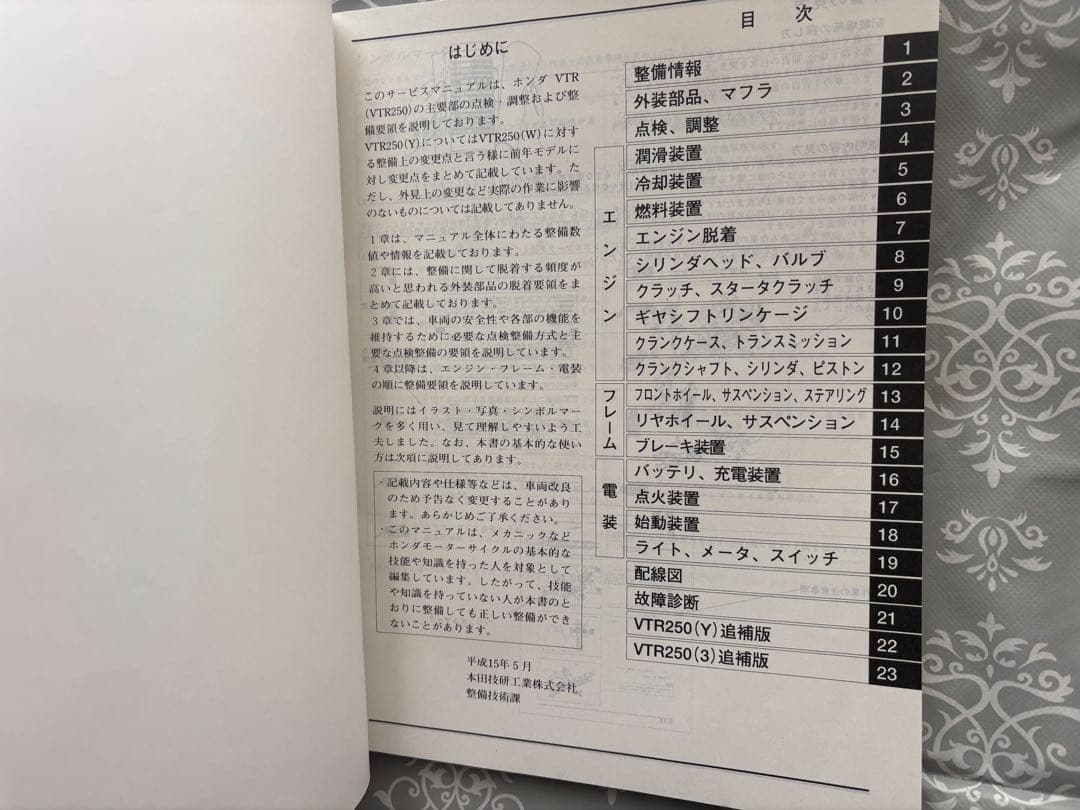 はじめに
このサービスマニュアルは、ホンダ VTR
(VTR250)の主要部の点検・調整および整
備要領を説明しております。
VTR250(Y)についてはVTR250(W)に対す
る整備上の変更点と言う様に前年モデルに
対し変更点をまとめて記載しています。た
だし、外見上の変更など実際の作業に影響
のないものについては記載してありません。
1章は、マニュアル全体にわたる整備数
値や情報を記載しております。
2章には、整備に関して脱着する頻度が
高いと思われる外装部品の脱着要領をま
とめて記載しております。
3章では、車両の安全性や各部の機能を
維持するために必要な点検整備方式と主
要な点検整備の要領を説明しています。
4章以降は、エンジン・フレーム・電装
の順に整備要領を説明しています。
説明にはイラスト・写真・シンボルマー
クを多く用い、見て理解しやすいよう工
夫しました。なお、本書の基本的な使い
方は次項に説明してあります。
・記載内容や仕様等などは、車両改良
のため予告なく変更することがあり
ます。あらかじめご了承ください。
・このマニュアルは、メカニックなど
ホンダモーターサイクルの基本的な
技能や知識を持った人を対象として
編集しています。したがって、技能
や知識を持っていない人が本書のと
おりに整備しても正しい整備ができ
ないことがあります。
平成15年5月
本田技研工業株式会社
整備技術課
目 次
整備情報 1
外装部品、マフラ 2
点検、調整 3
エンジン
潤滑装置 4
冷却装置 5
燃料装置 6
エンジン脱着 7
シリンダヘッド、バルブ 8
クラッチ、スタータクラッチ 9
ギヤシフトリンケージ 10
クランクケース、トランスミッション 11
クランクシャフト、シリンダ、ピストン 12
フレーム
フロントホイール、サスペンション、ステアリング 13
リヤホイール、サスペンション 14
ブレーキ装置 15
電装
バッテリ、充電装置 16
点火装置 17
始動装置 18
ライト、メータ、スイッチ 19
配線図 20
故障診断 21
VTR250(Y)追補版 22
VTR250(3)追補版 23